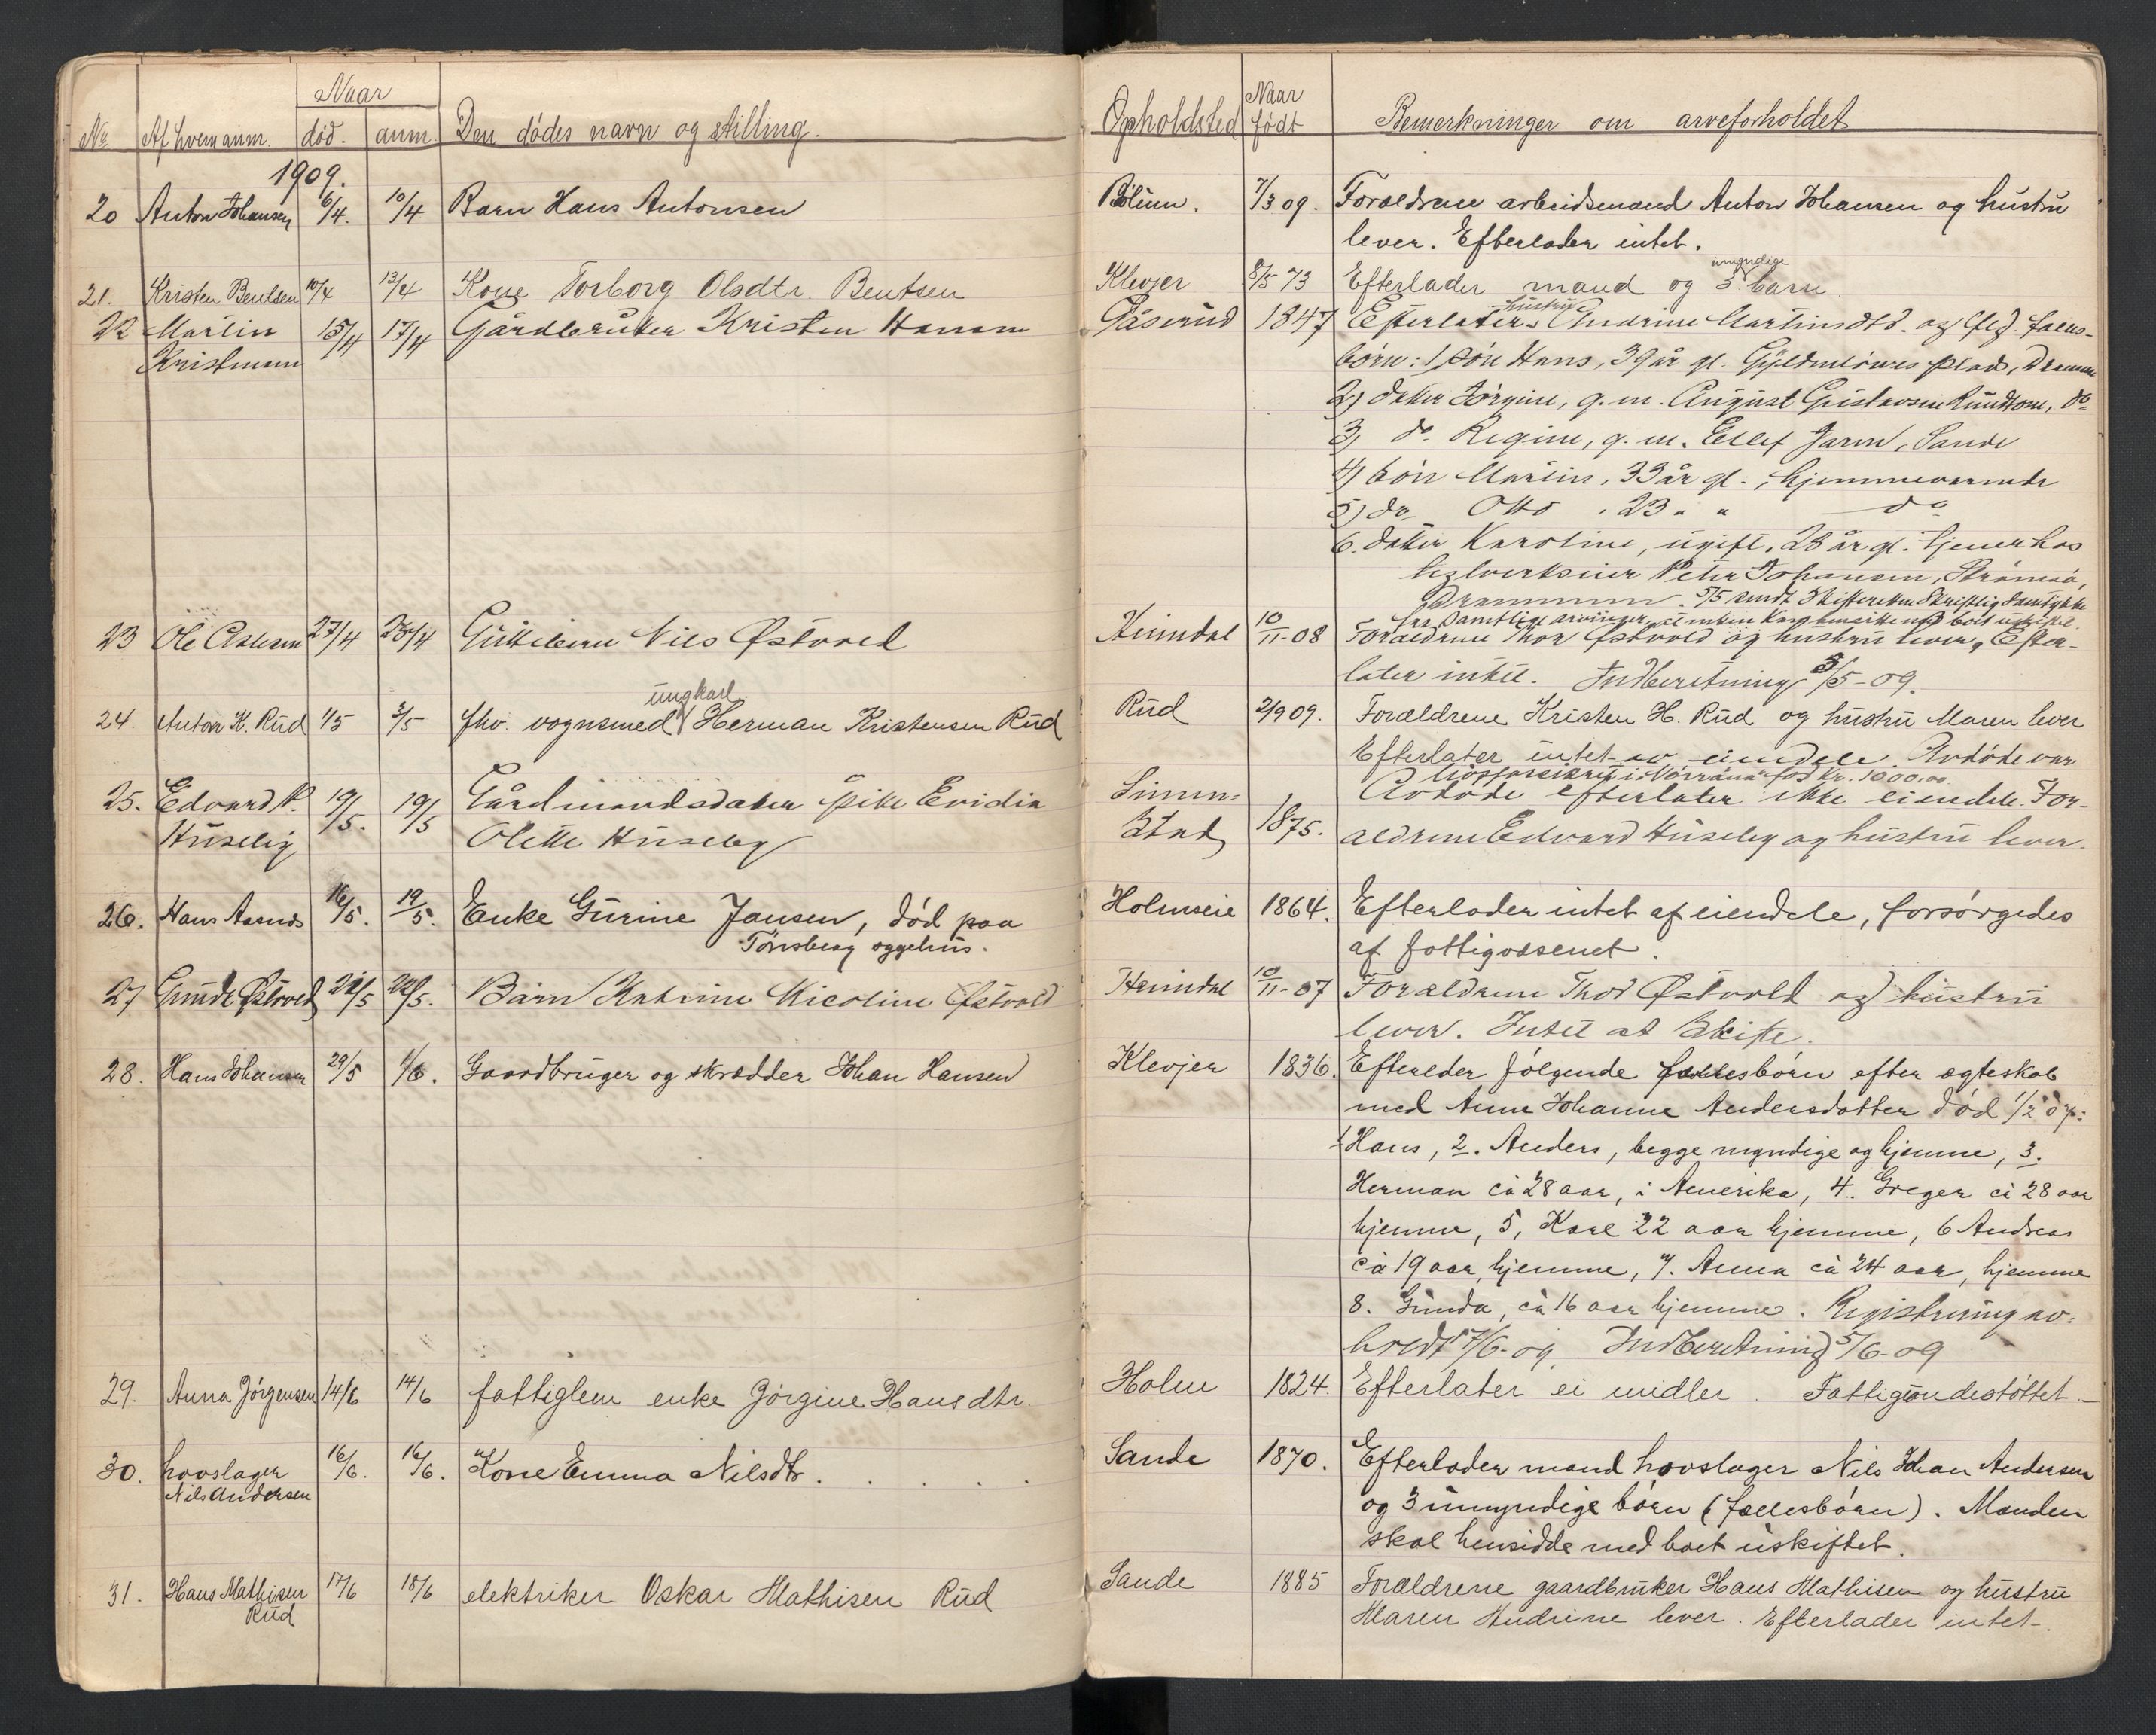 Naar
No Af hvem anm. død. anm. Den dødes navn og stilling.
1909.
20 Anton Johansen 6/4. 10/4 Barn Hans Antonsen
21. Kristen Bentsen 10/4 13/4 Kone Torborg Olsdtr. Bentsen
22 Martin 15/4 17/4 Gårdbruker Kristen Hansen
Kristensen
23 Ole 27/4 Guttebarn Nils Østvold
ungkarl
24. Anton K. Rud 1/5 3/5 fhv. vognsmed Herman Kristensen Rud
25. Edvard P. 19/5. 19/5 Gårdmandsdatter pike Evidia
Huseby Olette Huseby
26. Hans Aasnes 16/5. 19/5. Enke Gurine Jansen, død paa
Tønsberg sygehus.
27 Gunde Østvold Barn Katrine Nicoline Østvold
28. Hans Johansen 29/5 1/6. Gaardbruger og skrædder Johan Hansen
29. Anna Jørgensen 14/6 14/6 fattiglem enke Jørgine Hansdtr.
30. hovslager 16/6. 16/6. Kone Emma Nilsdtr.
Nils Andersen
31. Hans Mathisen 17/6 18/6 elektriker Oskar Mathisen Rud
Rud
Opholdsted Naar født Bemerkninger om arveforholdet
7/3 09. Forældrene arbeidsmand Anton Johansen og hustru
lever. Efterlader intet.
umyndige
Klevjer 8/5 73 Efterlader mand og 3 barn.
hustru
Gåserud 1847 Efterlater Andrine Martinsdtd. og flg. fæles-
børn: 1) søn Hans, 39 år gl. plads, Drammen
2) datter Jørgine, g. m. August Gustavsen Rundtom, do
3) do. Regine, g. m. Ellef Jarm, Sande
4) søn Martin, 33 år gl., hjemmeværende
5) do. Otto, 23 " " do
6. datter Karoline, ugift, 28 år gl. tjener hos
Peter Johansen, Strømsø,
Drammen. 5/5 sendt Skifteretten Skriftlig Samtykke
fra samtlige arvinger, enken kan hensitte med boet uskiftet.
Heimdal 10/11-08 Forældrene Thor Østvold og hustru lever, Efter-
later intet. Indberetning 5/5-09.
Rud 2/9 09. Forældrene Kristen H. Rud og hustru Maren lever
Efterlater intet av eiendele. Avdøde var
livsforsikret i for kr. 1000.00
Avdøde efterlater ikke eiendele. For-
1875. ældrene Edvard Huseby og hustru lever.
Holmseie 1864. Efterlader intet af eiendele, forsørgedes
af fattigvæsenet.
Heimdal 10/11-07 Forældrene Thor Østvold og hustru
lever. Intet at skifte.
Klevjer 1836. Efterleder følgende fællesbørn efter ægteskab
med Anne Johanne Andersdatter død 1/2 07:
1 Hans, 2. Anders, begge myndige og hjemme, 3.
Herman ca 28 aar, i Amerika, 4. Greger ca 28 aar
hjemme, 5, Karl 22 aar hjemme, 6 Andreas
ca 19 aar, hjemme, 7. Anna ca 24 aar, hjemme
8. Gunda, ca 16 aar hjemme. Registrering av-
holdt 17/6-09 Indberetning 5/6-09
Holm 1824. Efterlater ei midler. Fattigunderstøttet.
Sande 1870. Efterlader mand hovslager Nils Johan Andersen
og 3 umyndige børn (fællesbørn). Manden
skal hensidde med boet uskiftet.
Sande 1885 Forældrene gaardbruker Hans Mathisen og hustru
Maren Andrine lever. Efterlader intet.